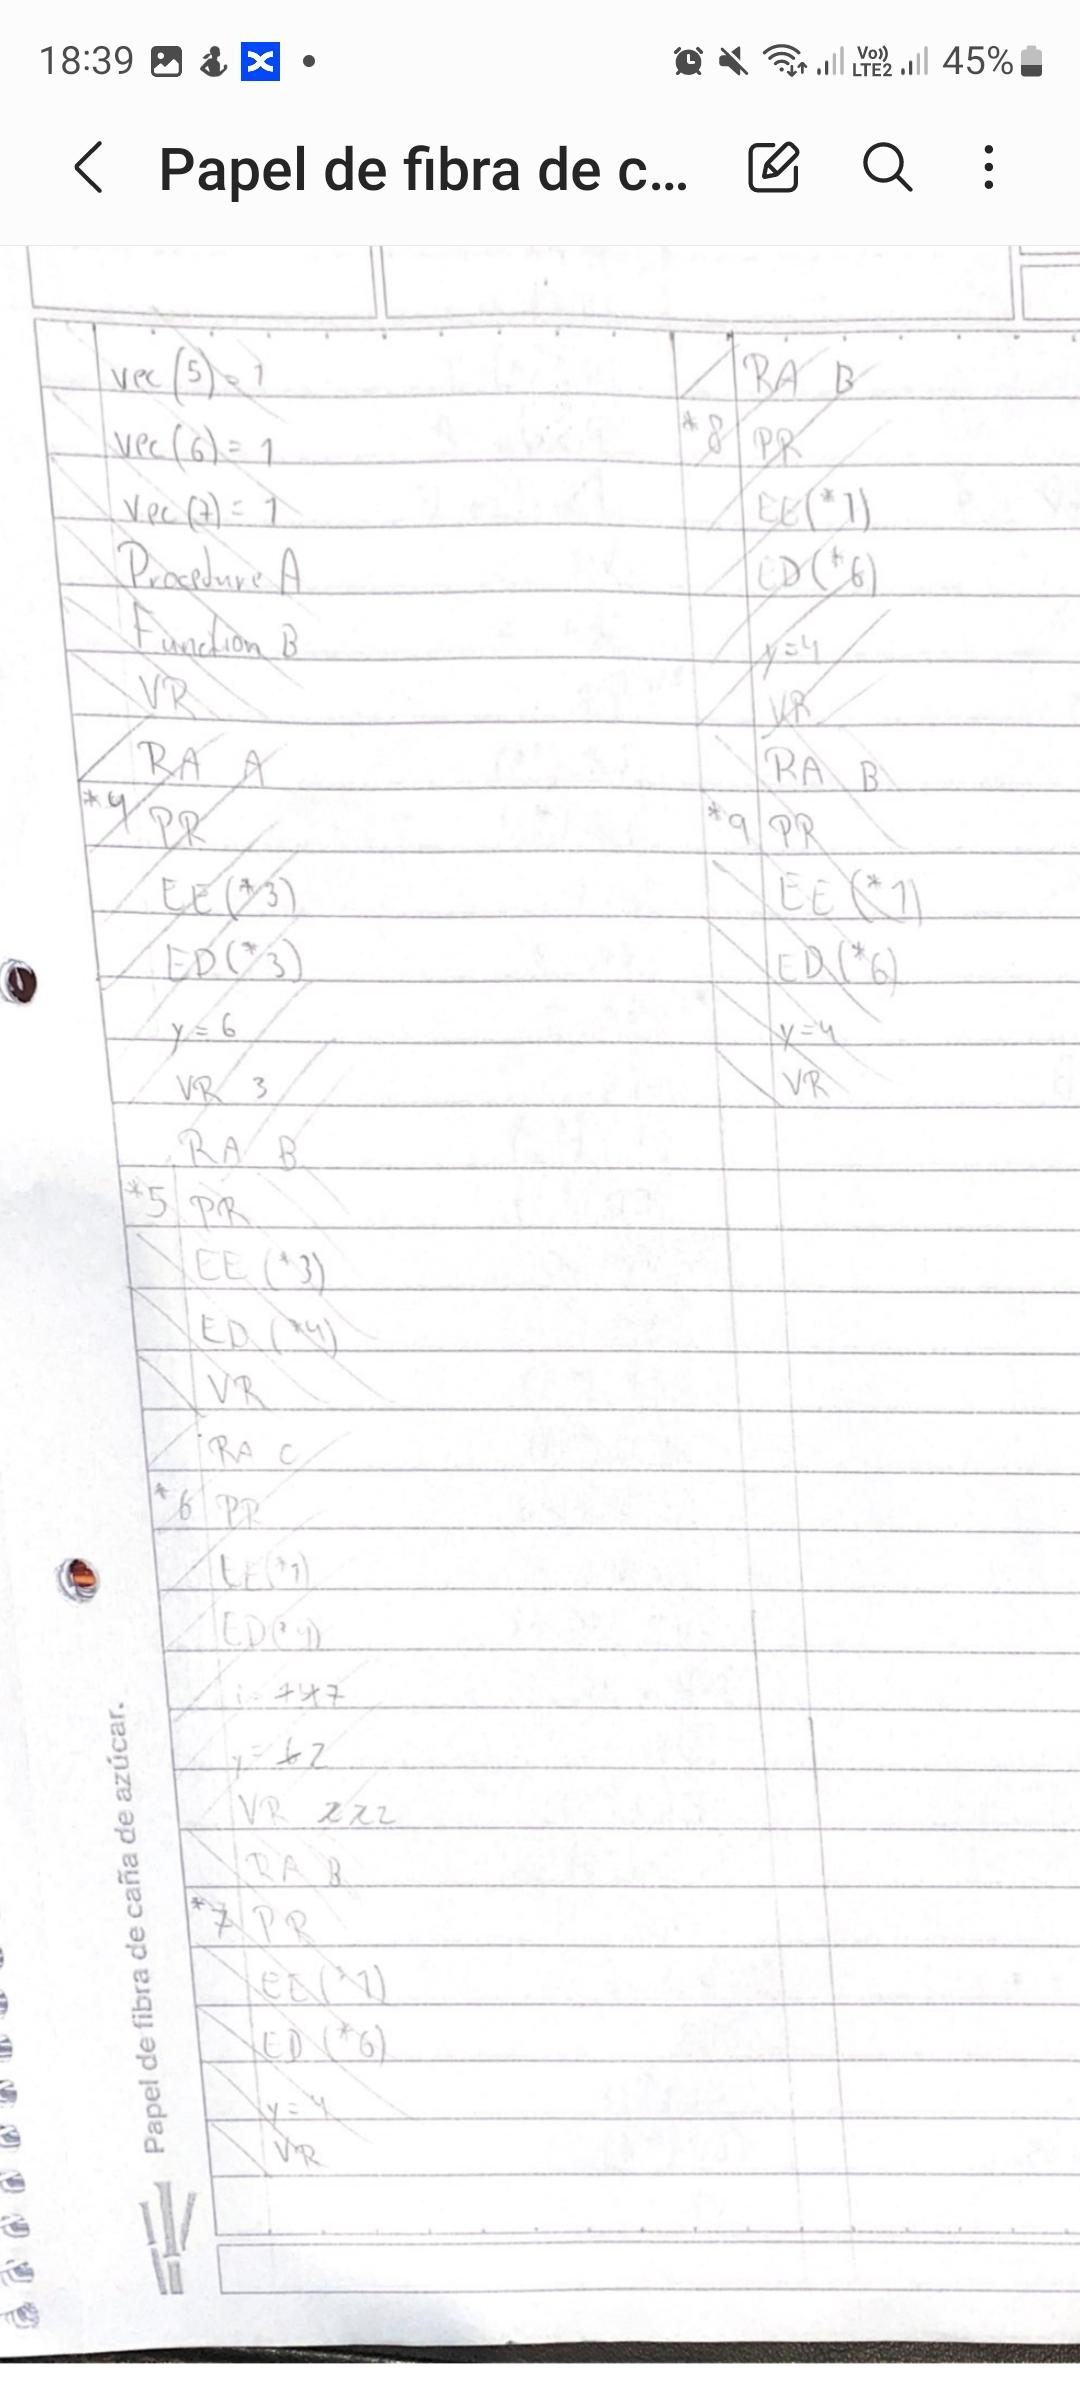 18:39
Vo))
LTE2
45%
Papel de fibra de c...
vec(5)=1
vec(6)=1
vec(7)=1
Procedure A
Function B
VR
RA A
*4 PR
EE(*3)
ED(*3)
y=6
VR 3
RA B
*5 PR
EE (*3)
ED (*4)
VR
RA C
*6 PR
EE(*1)
y=
VR
RA B
*7 PR
EE(*1)
ED (*6)
y=4
VR
RA B
*8 PR
EE(*1)
ED(*6)
y=4
VR
RA B
*9 PR
EE (*1)
ED(*6)
y=4
VR
Papel de fibra de caña de azúcar.